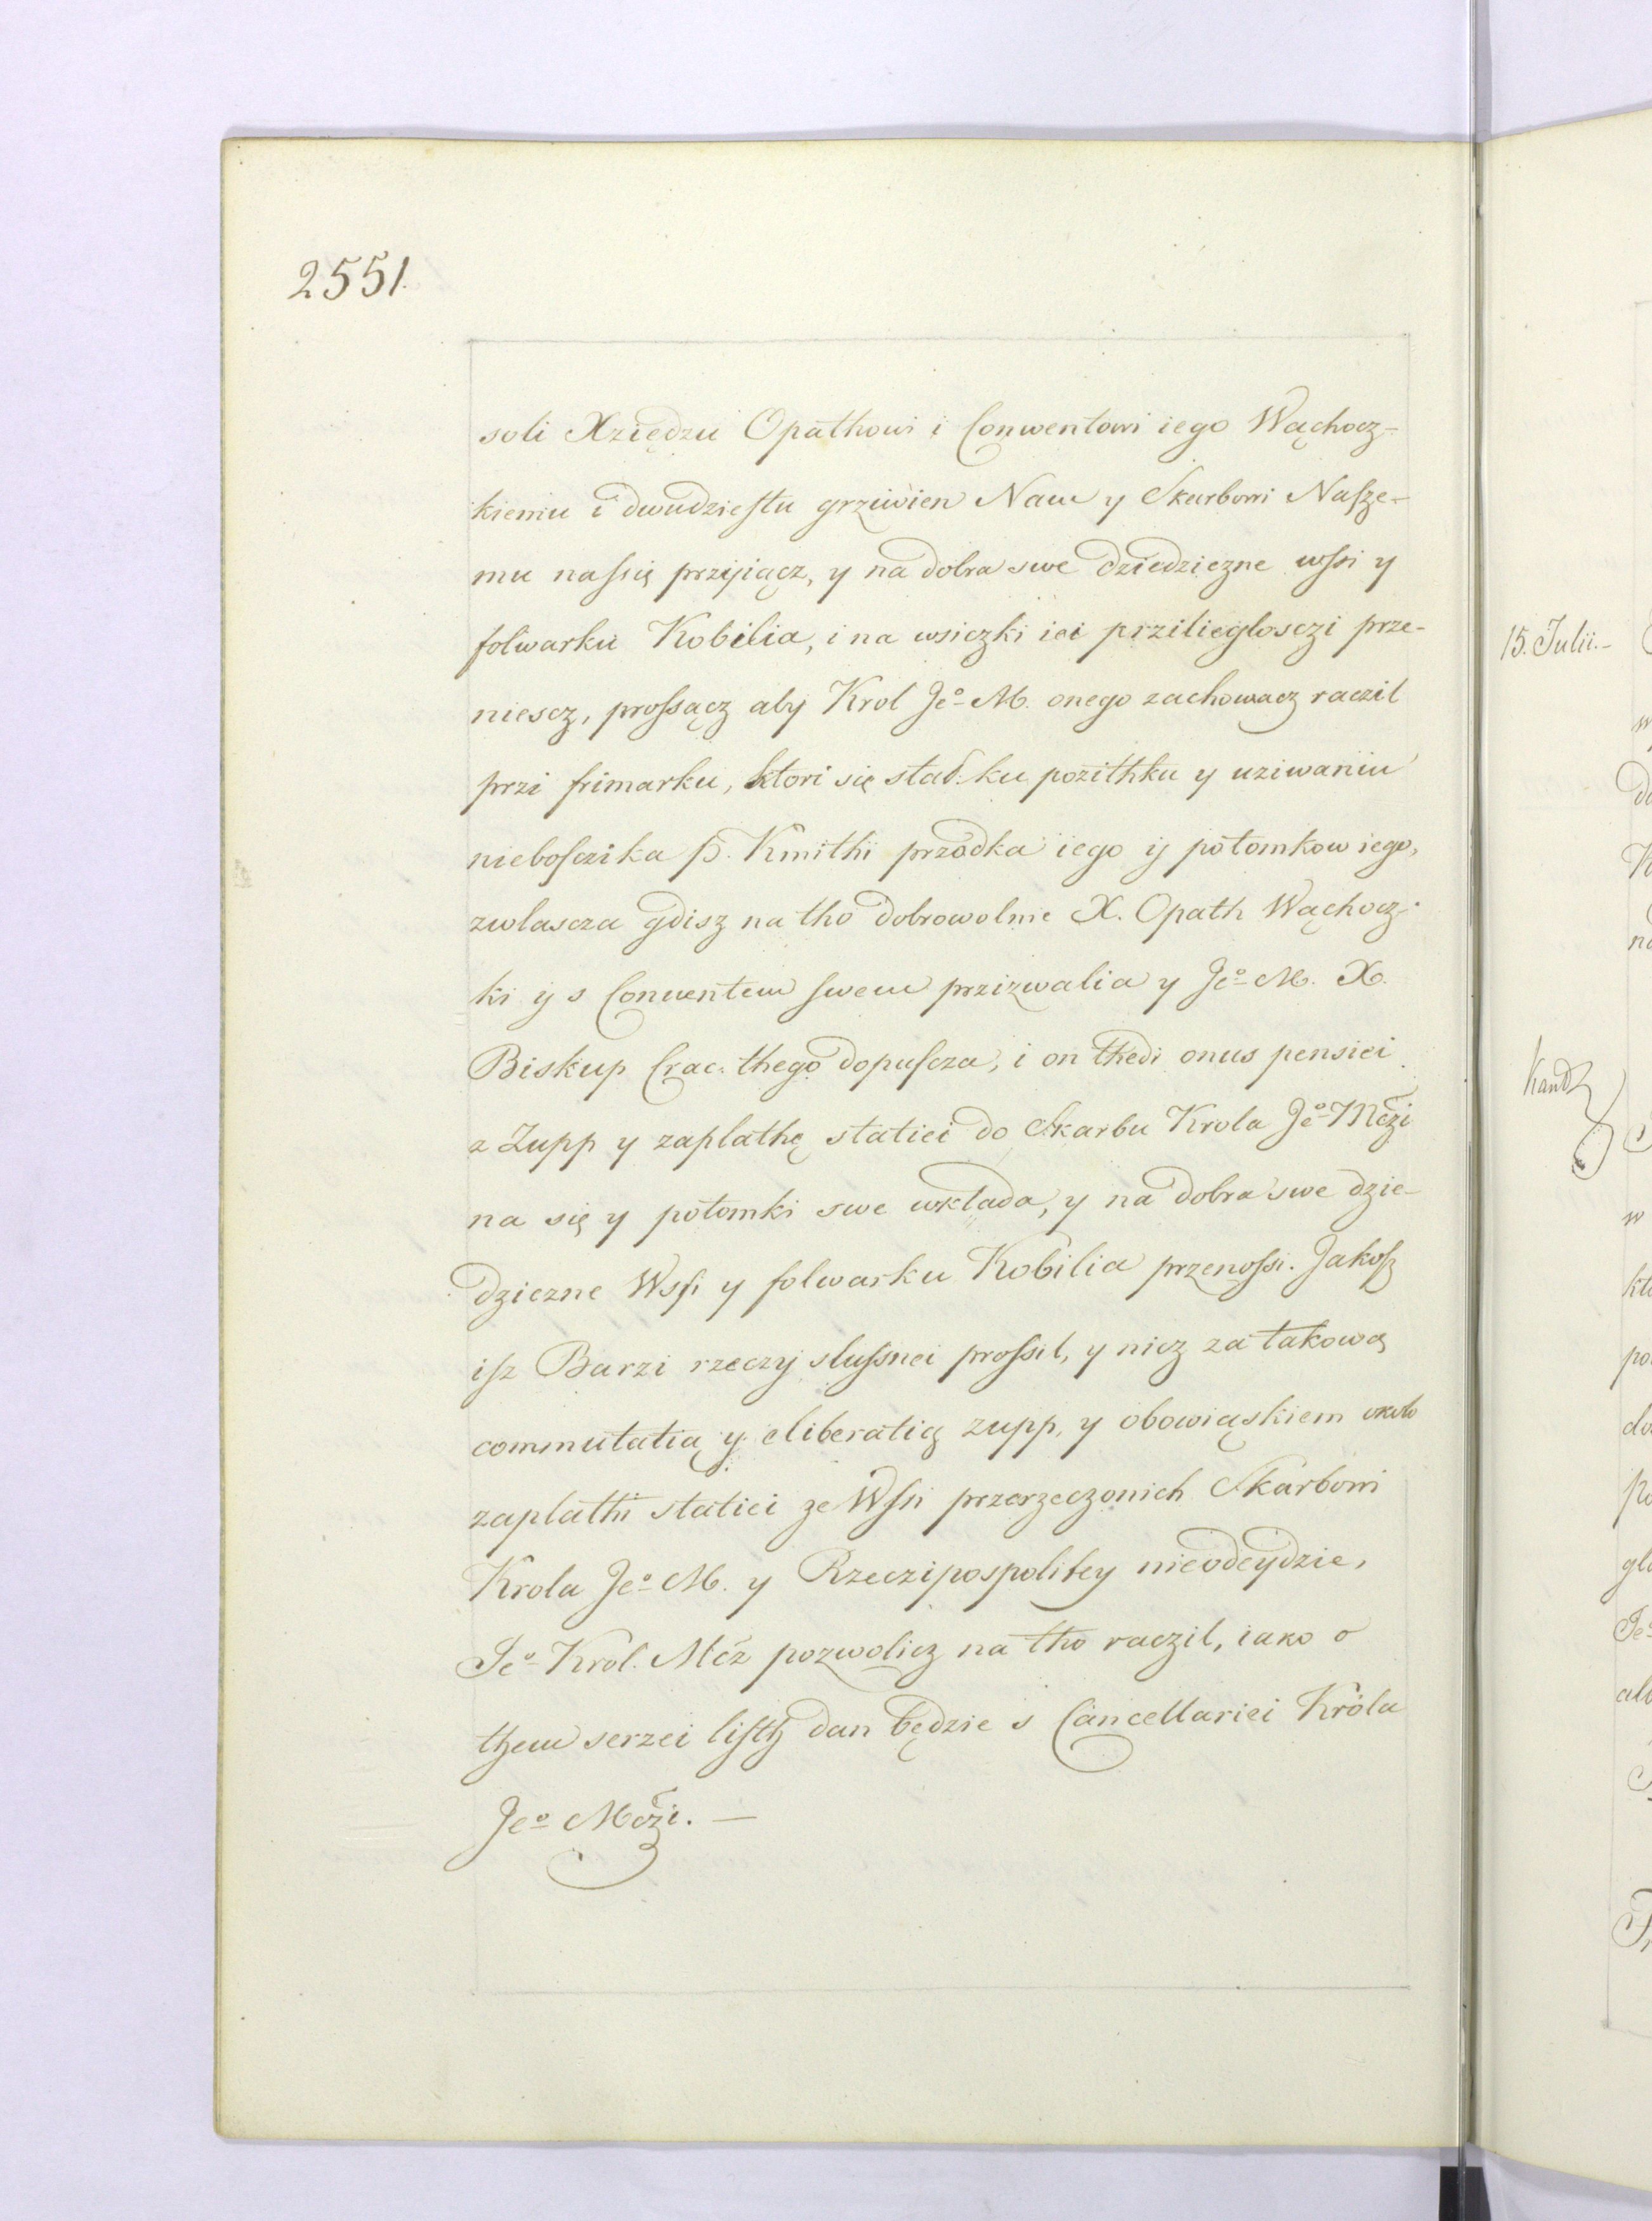 2551.
soli Xziędzu Opathowi i Conwentowi iego Wąchocz-
kiemu i dwudziestu grziwien Nam y Skarbowi Nasze-
mu nassię przijiącz, y na dobra swe dziedziczne wssi y
folwarku Kobilia, i na wsiczki iei prziliegloszczi prze-
niescz, prossącz aby Krol Jeº M. onego zachowacz raczil
przi frimarku, ktori się stal ku pozithku y uziwaniu
nieboszczika P. Kmithi przodka iego ij potomkow iego,
zwlascza gdisz na tho dobrowolnie X. Opath Wąchocz-
ki ij s Conuentem swem przizwalia y Jeº M. X.
Biskup Crac. thego dopuscza, i on thedi onus pensiei
z Zupp y zaplathę statiei do Skarbu Krola Jeº Mczi
na się y potomki swe wklada, y na dobra swe dzie-
dziczne Wssi y folwarku Kobilia przenossi. Jakosz
isz Barzi rzeczy slussnei prossil, y nicz za takową
commutatią y eliberatią zupp, y obowiąskiem około
zaplathi statiei ze Wssi przerzeczonich Skarbowi
Krola Jeº M. y Rzeczipospolitey nieodeydzie,
Jeº Krol. Mcz pozwolicz na tho raczil, iako o
them serzei listh dan będzie s Cancellariei Króla
Jeº Mczi. —
15. Julii. -